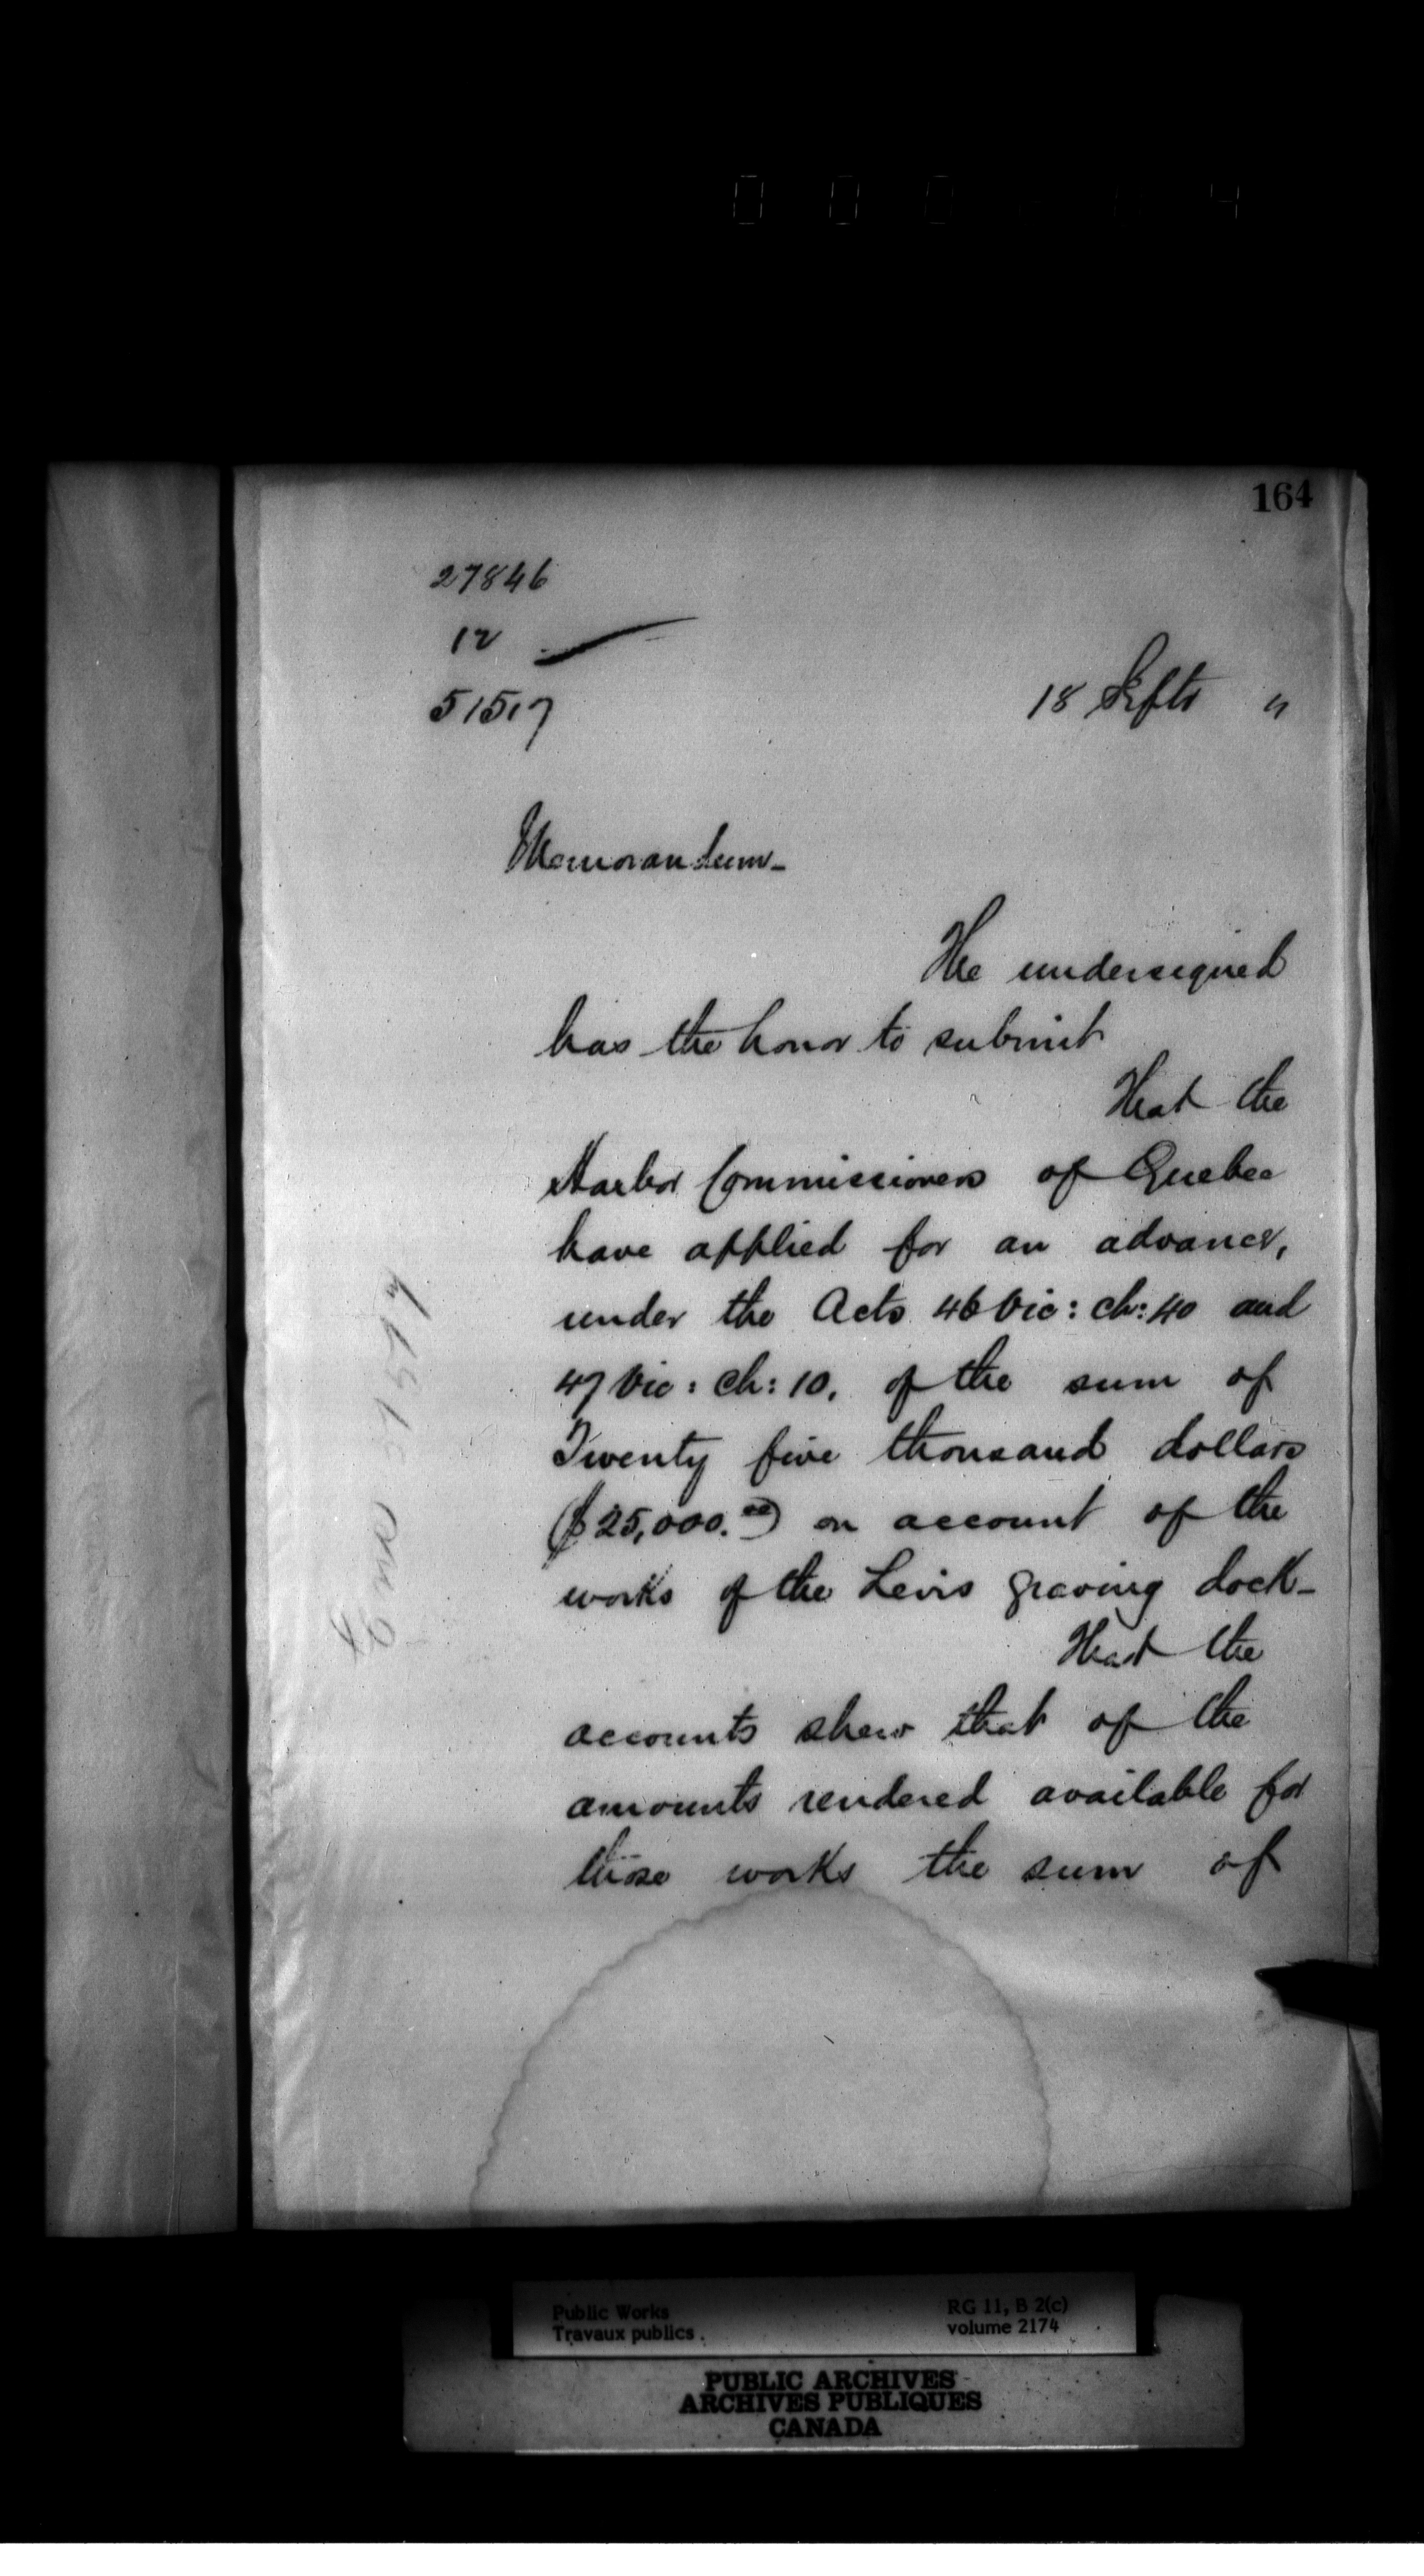 164
27846
12
51517
18 Septr "
Memorandum-
The undersigned
has the honor to submit
That the
Harbor Commissioners of Quebec
have applied for an advance,
under the Acts 46 Vic: ch: 40 and
47 Vic: ch: 10, of the sum of
Twenty five thousand dollars
($25,000.00) on account of the
works of the Levis graving dock-
That the
accounts shew that of the
amounts rendered available for
those works the sum of
51517
Public Works
Travaux publics
RG 11, B 2(c)
volume 2174
PUBLIC ARCHIVES
ARCHIVES PUBLIQUES
CANADA